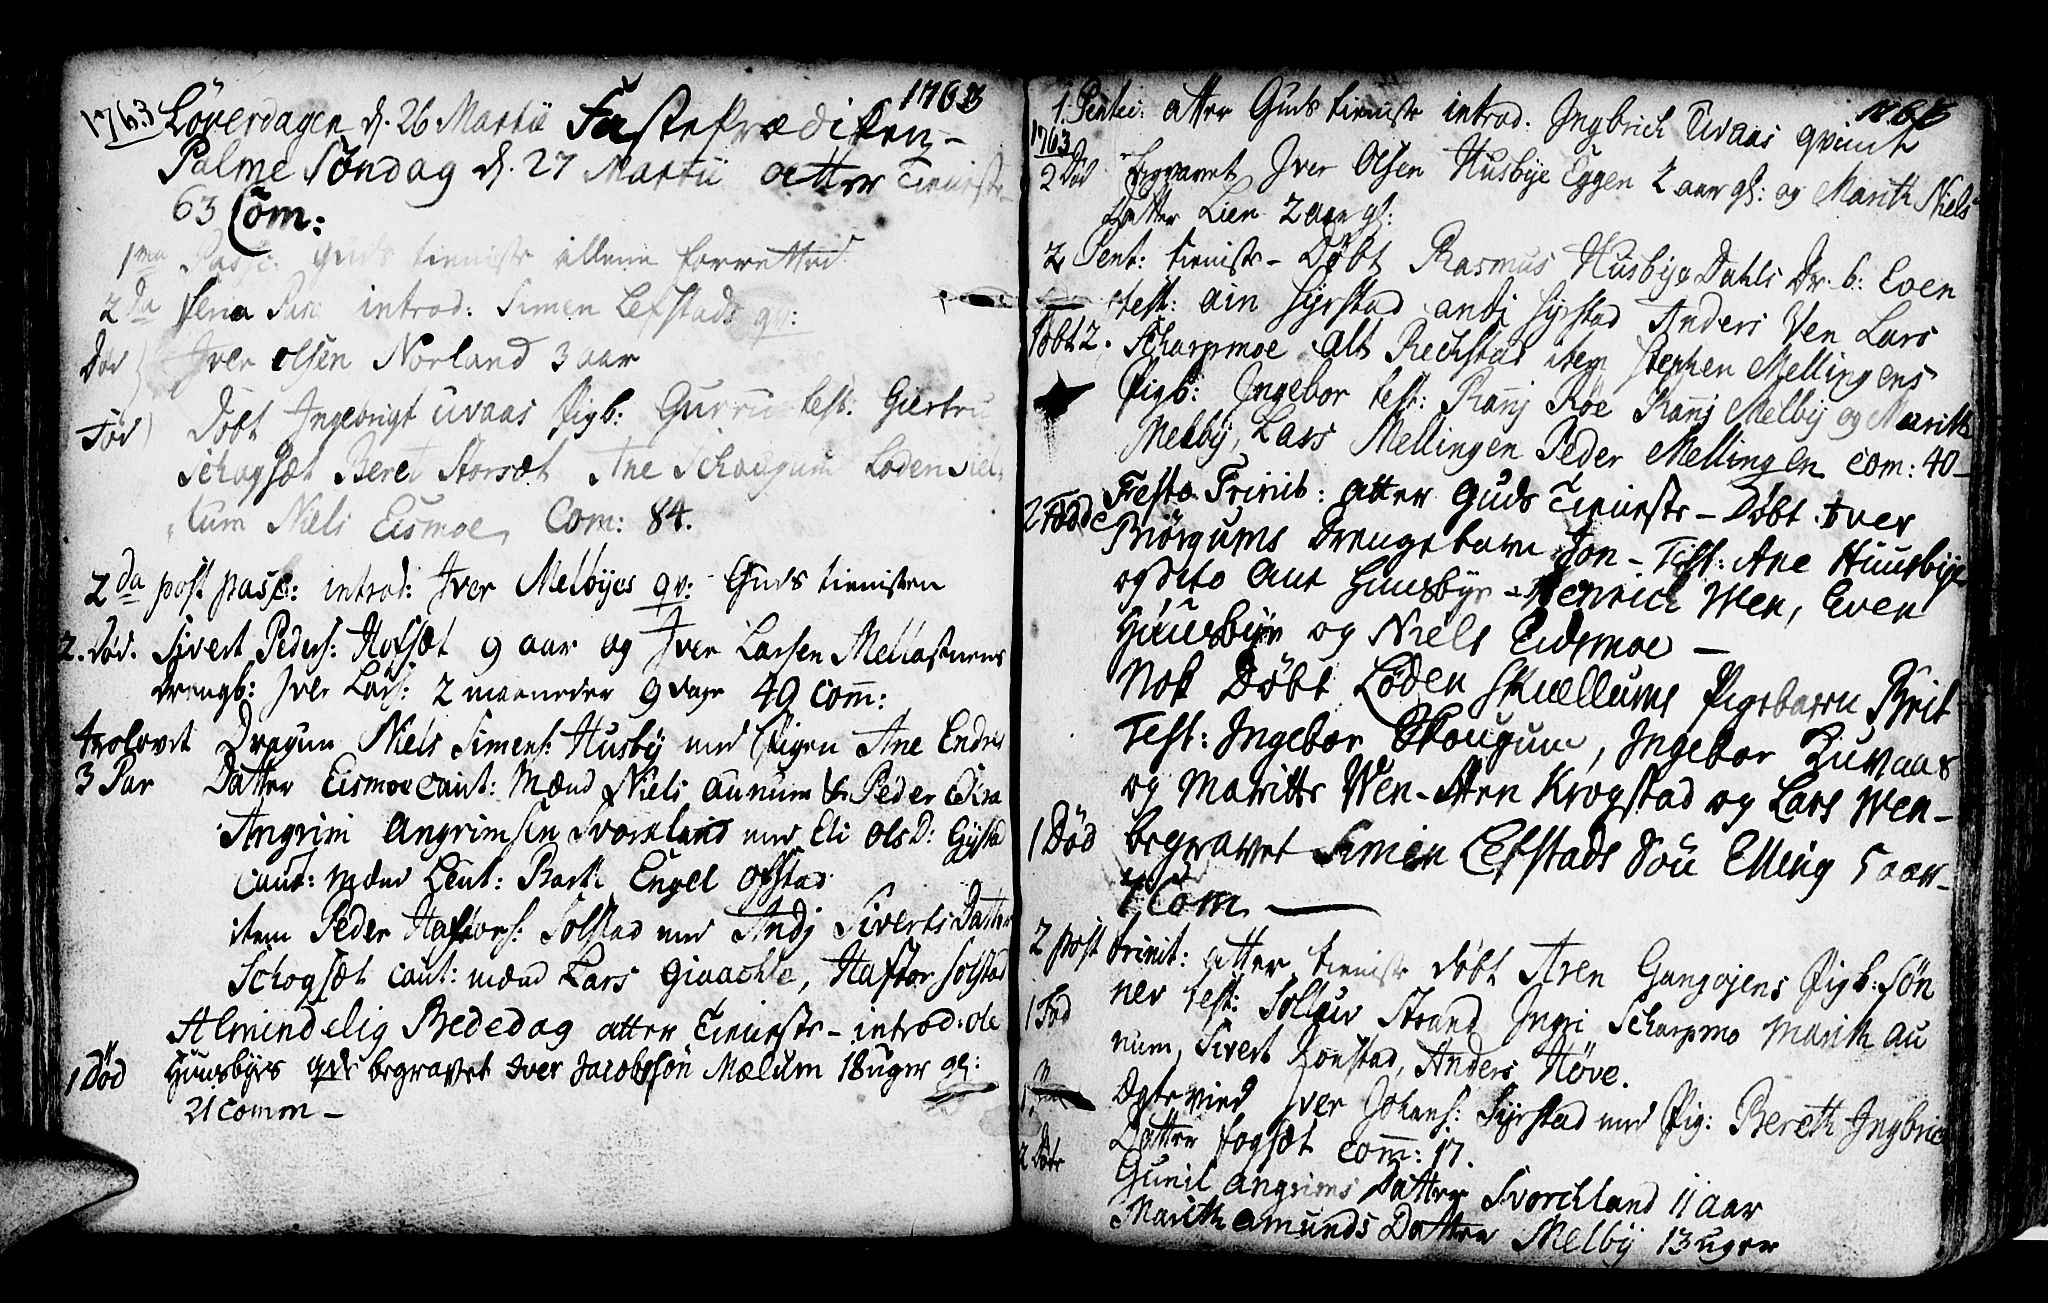 1763 Löverdagen d. 26 Martii Fasteprædiken – 1763
Palme Söndag d. 27 Martii atter Tieneste
63 Com:
1ma Pasc: guds tieniste allene forretted
2da feria Pasc introd: Simen Lefstads qv:
Död Iver olsen Norland 3 aar
Död Döbt Ingebrigt Uvaas Pigb: Gurru test: Giertru
Schogsæt Beret Storsæt Ane Schougum Loden Schel
tum Niels Eismoe, Com: 84.
2da post pasc: introd: Iver Melbyes qv: Guds tienisten
2. Död. Sivert Peders: Hofsæt 9 aar og Iver Larsen Mellastuens
Drengb: Iver Lars: 2 maaneder 9 dage 49 com:
Trolovet Dragun Niels Simens: Husby med Pigen Ane Endres
3 Par Datter Eismoe caut: Mænd Niels aunum & Peder
Angrim Angrimsen Svorkland med Eli Ols D: Gyfstad
Caut: mænd Leut: Barth Engel Ofstad
item Peder Haftors: Solstad med Andj Siverts Datter
Schogsæt caut: mænd Lars Giaachle, Haftor solstad
Almindelig Bededag atter Tieneste – introd: ole
1 Död Huusbyes qvs begravet Iver Jacobssön Mælum 18 uger gl:
21 comm –
1. Pentec: atter Guds tieniste introd. Ingbrich Uvaas qvinde 1763
1763
2 Död Begravet Iver Olsen Husbye Eggen 2 aar gl: og Marith Niels
Datter Lien 2 aar gl:
2 Pent: tieniste – Döbt Rasmus Husbye Dahls Dr. b: Even
test: Syrstad Syrstad Anders Wen Lars
Döbt 2. Scharpmoe Rechstad item Stephen Mellingens
Pigb: Ingebor test: Ranj Roe Ranj Melby og Marith
Melby, Lars Mellingen Peder Mellingen com: 40 –
Festo Trinit: atter Guds Tieneste – Döbt Iver
2 Födde Biörgums Drengebarn Jon – Test: Ane Huusbye
og dito Huusbye – Henrich Wen, Even
Huusbye og Niels Eidsmoe –
Nok Döbt Loden Skiellums Pigebarn Brit
Test: Ingebor Skougum, Ingebor Zuvaas
og Marith Wen – Aren Krogstad og Lars Wen –
1 Död begravet Simen Lefstads Sön Elling 5 aar –
7 Com –
2 post trinit: atter tieniste döbt Aren Gangojens Pigb: Sön
1 Föd nev test: Solluv Strand Ingri Scharpmo Marith Au
num, Sivert Lonstad, Anders Höve.
Ogte vied Iver Johans: Syrstad med Pig: Bereth Ingbric
2 Döde Datter fogsæt com: 17.
Gunil angrims Datter Svorchland 11 aar
Marith amunds Datter Melby 13 uger